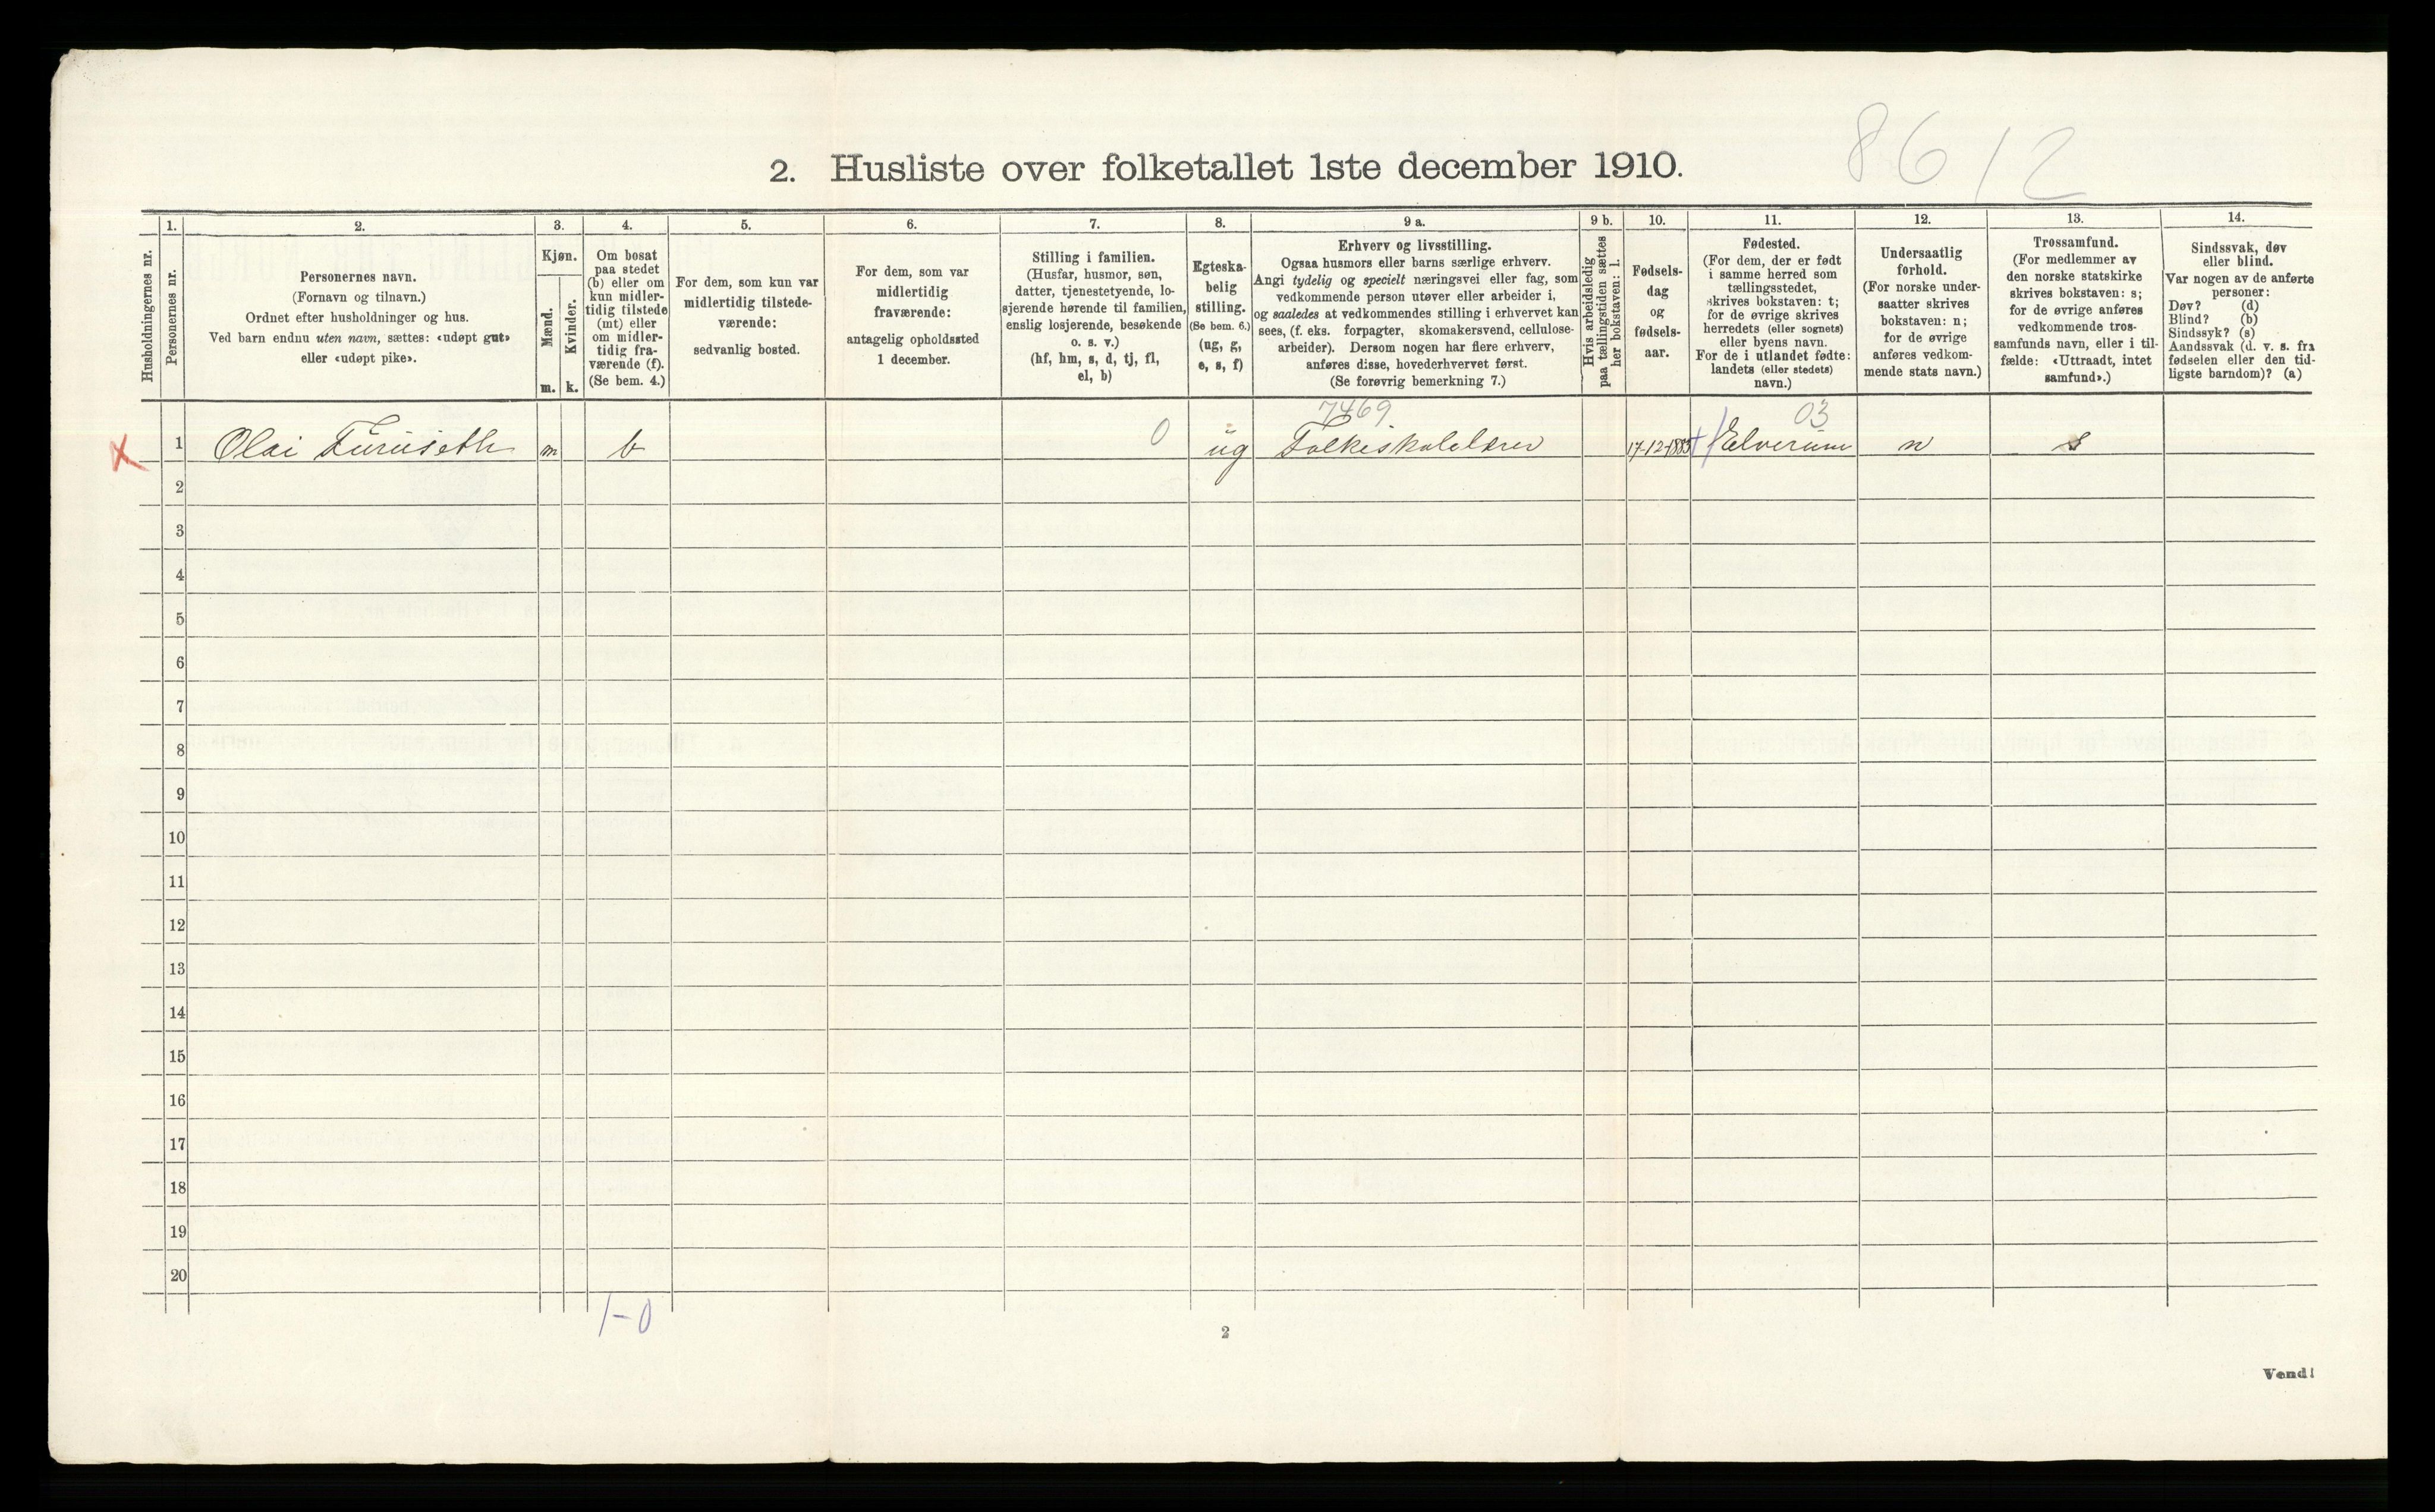 8612
2. Husliste over folketallet 1ste december 1910.
Husholdningernes nr.
1.
Personernes nr.
2.
Personernes navn.
(Fornavn og tilnavn.)
Ordnet efter husholdninger og hus.
Ved barn endnu uten navn, sættes: «udøpt gut»
eller «udøpt pike».
3.
Kjøn.
Mænd.
Kvinder.
m.
k.
4.
Om bosat
paa stedet
(b) eller om
kun midler-
tidig tilstede
(mt) eller
om midler-
tidig fra-
værende (f).
(Se bem. 4.)
5.
For dem, som kun var
midlertidig tilstede-
værende:
sedvanlig bosted.
6.
For dem, som var
midlertidig
fraværende:
antagelig opholdssted
1 december.
7.
Stilling i familien.
(Husfar, husmor, søn,
datter, tjenestetyende, lo-
sjerende hørende til familien,
enslig losjerende, besøkende
o. s. v.)
(hf, hm, s, d, tj, fl,
el, b)
8.
Egteska-
belig
stilling.
(Se bem. 6.)
(ug, g,
e, s, f)
9 a.
Erhverv og livsstilling.
Ogsaa husmors eller barns særlige erhverv.
Angi tydelig og specielt næringsvei eller fag, som
vedkommende person utøver eller arbeider i,
og saaledes at vedkommendes stilling i erhvervet kan
sees, (f. eks. forpagter, skomakersvend, cellulose-
arbeider). Dersom nogen har flere erhverv,
anføres disse, hovederhvervet først.
(Se forøvrig bemerkning 7.)
9 b.
Hvis arbeidsledig
paa tællingstiden sættes
her bokstaven: l.
10.
Fødsels-
dag
og
fødsels-
aar.
11.
Fødested.
(For dem, der er født
i samme herred som
tællingsstedet,
skrives bokstaven: t;
for de øvrige skrives
herredets (eller sognets)
eller byens navn.
For de i utlandet fødte:
landets (eller stedets)
navn.)
12.
Undersaatlig
forhold.
(For norske under-
saatter skrives
bokstaven: n;
for de øvrige
anføres vedkom-
mende stats navn.)
13.
Trossamfund.
(For medlemmer av
den norske statskirke
skrives bokstaven: s;
for de øvrige anføres
vedkommende tros-
samfunds navn, eller i til-
fælde: «Uttraadt, intet
samfund».)
14.
Sindssvak, døv
eller blind.
Var nogen av de anførte
personer:
Døv? (d)
Blind? (b)
Sindssyk? (s)
Aandssvak (d. v. s. fra
fødselen eller den tid-
ligste barndom)? (a)
7469 03
X 1 Olai Furuseth m b 0 ug Folkeskolelærer 17-12-1883 Elverum n s
2
3
4
5
6
7
8
9
10
11
12
13
14
15
16
17
18
19
20
1-0
2
Vend!